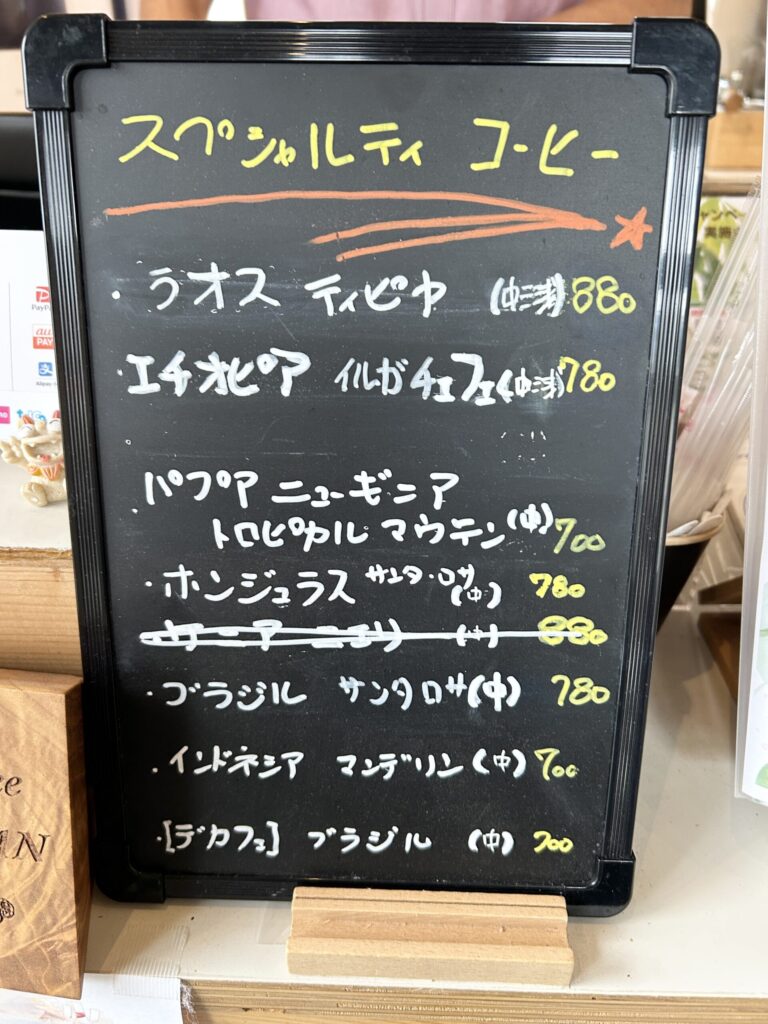 スペシャルティ コーヒー
・ラオス ティピカ (中浅) 880
・エチオピア イルガチェフェ (中浅) 780
・パプアニューギニア
トロピカル マウテン (中) 700
・ホンジュラス サンタ・ロサ (中) 780
880
・ブラジル サンタロサ (中) 780
・インドネシア マンデリン (中) 700
・[デカフェ] ブラジル (中) 700
PayPa
au
PAY
Alipay
ャンペ
実施
ee